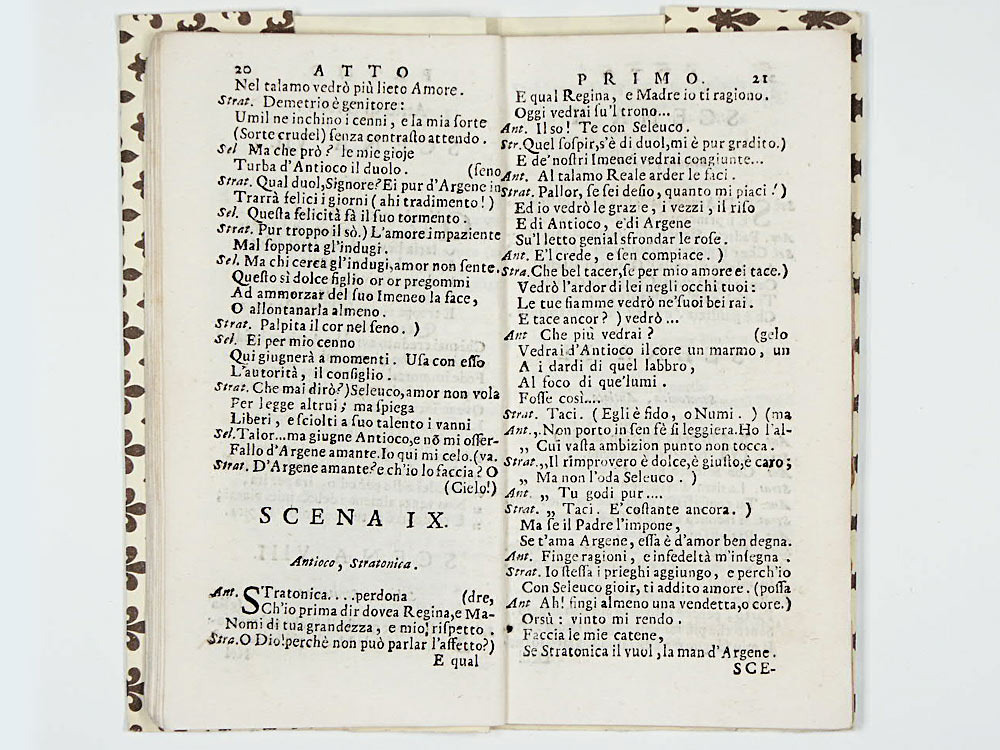 20 ATTO
Nel talamo vedrò più lieto Amore.
Strat. Demetrio è genitore:
Umil ne inchino i cenni, e la mia ſorte
(Sorte crudel) ſenza contraſto attendo.
Sel Ma che prò? le mie gioje
Turba d'Antioco il duolo. (ſeno
Strat. Qual duol, Signore? Ei pur d'Argene in
Trarrà felici i giorni (ahi tradimento!)
Sel. Queſta felicità fà il ſuo tormento.
Strat. Pur troppo il sò.) L'amore impaziente
Mal ſopporta gl'indugi.
Sel. Ma chi cerca gl'indugi, amor non ſente.
Queſto sì dolce figlio or or pregommi
Ad ammorzar del ſuo Imeneo la face,
O allontanarla almeno.
Strat. Palpita il cor nel ſeno. )
Sel. Ei per mio cenno
Qui giugnerà a momenti. Uſa con eſſo
L'autorità, il conſiglio.
Strat. Che mai dirò?) Seleuco, amor non vola
Per legge altrui; ma ſpiega
Liberi, e ſciolti a ſuo talento i vanni
Sel. Talor... ma giugne Antioco, e nõ mi oſſer-
Fallo d'Argene amante. Io qui mi celo. (va.
Strat. D'Argene amante? e ch'io lo faccia? O
(Cielo!)
SCENA IX.
Antioco, Stratonica.
Ant. STratonica.... perdona (dre,
Ch'io prima dir dovea Regina, e Ma-
Nomi di tua grandezza, e mio riſpetto.
Stra. O Dio! perchè non può parlar l'affetto?)
E qual
PRIMO. 21
E qual Regina, e Madre io ti ragiono.
Oggi vedrai ſu'l trono...
Ant. Il so! Te con Seleuco.
Str. Quel ſoſpir, s'è di duol, mi è pur gradito.)
E de' noſtri Imenei vedrai congiunte...
Ant. Al talamo Reale arder le faci.
Strat. Pallor, ſe ſei deſio, quanto mi piaci!)
Ed io vedrò le grazie, i vezzi, il riſo
E di Antioco, e di Argene
Su'l letto genial sfrondar le roſe.
Ant. E'l crede, e ſen compiace. )
Stra. Che bel tacer, ſe per mio amore ei tace.)
Vedrò l'ardor di lei negli occhi tuoi:
Le tue fiamme vedrò ne'ſuoi bei rai.
E tace ancor? ) vedrò...
Ant Che più vedrai? (gelo
Vedrai d'Antioco il core un marmo, un
A i dardi di quel labbro,
Al foco di que'lumi.
Foſſe così....
Strat. Taci. (Egli è fido, o Numi. ) (ma
Ant. ,, Non porto in ſen ſè sì leggiera. Ho l'al-
,, Cui vaſta ambizion punto non tocca.
Strat. ,, Il rimprovero è dolce, è giuſto, è caro;
,, Ma non l'oda Seleuco. )
Ant. ,, Tu godi pur....
Strat. ,, Taci. E' coſtante ancora. )
Ma ſe il Padre l'impone,
Se t'ama Argene, eſſa è d'amor ben degna.
Ant. Finge ragioni, e infedeltà m'inſegna.
Strat. Io ſteſſa i prieghi aggiungo, e perch'io
Con Seleuco gioir, ti addito amore. (poſſa
Ant Ah! fingi almeno una vendetta, o core.)
Orsù: vinto mi rendo.
Faccia le mie catene,
Se Stratonica il vuol, la man d'Argene.
SCE-